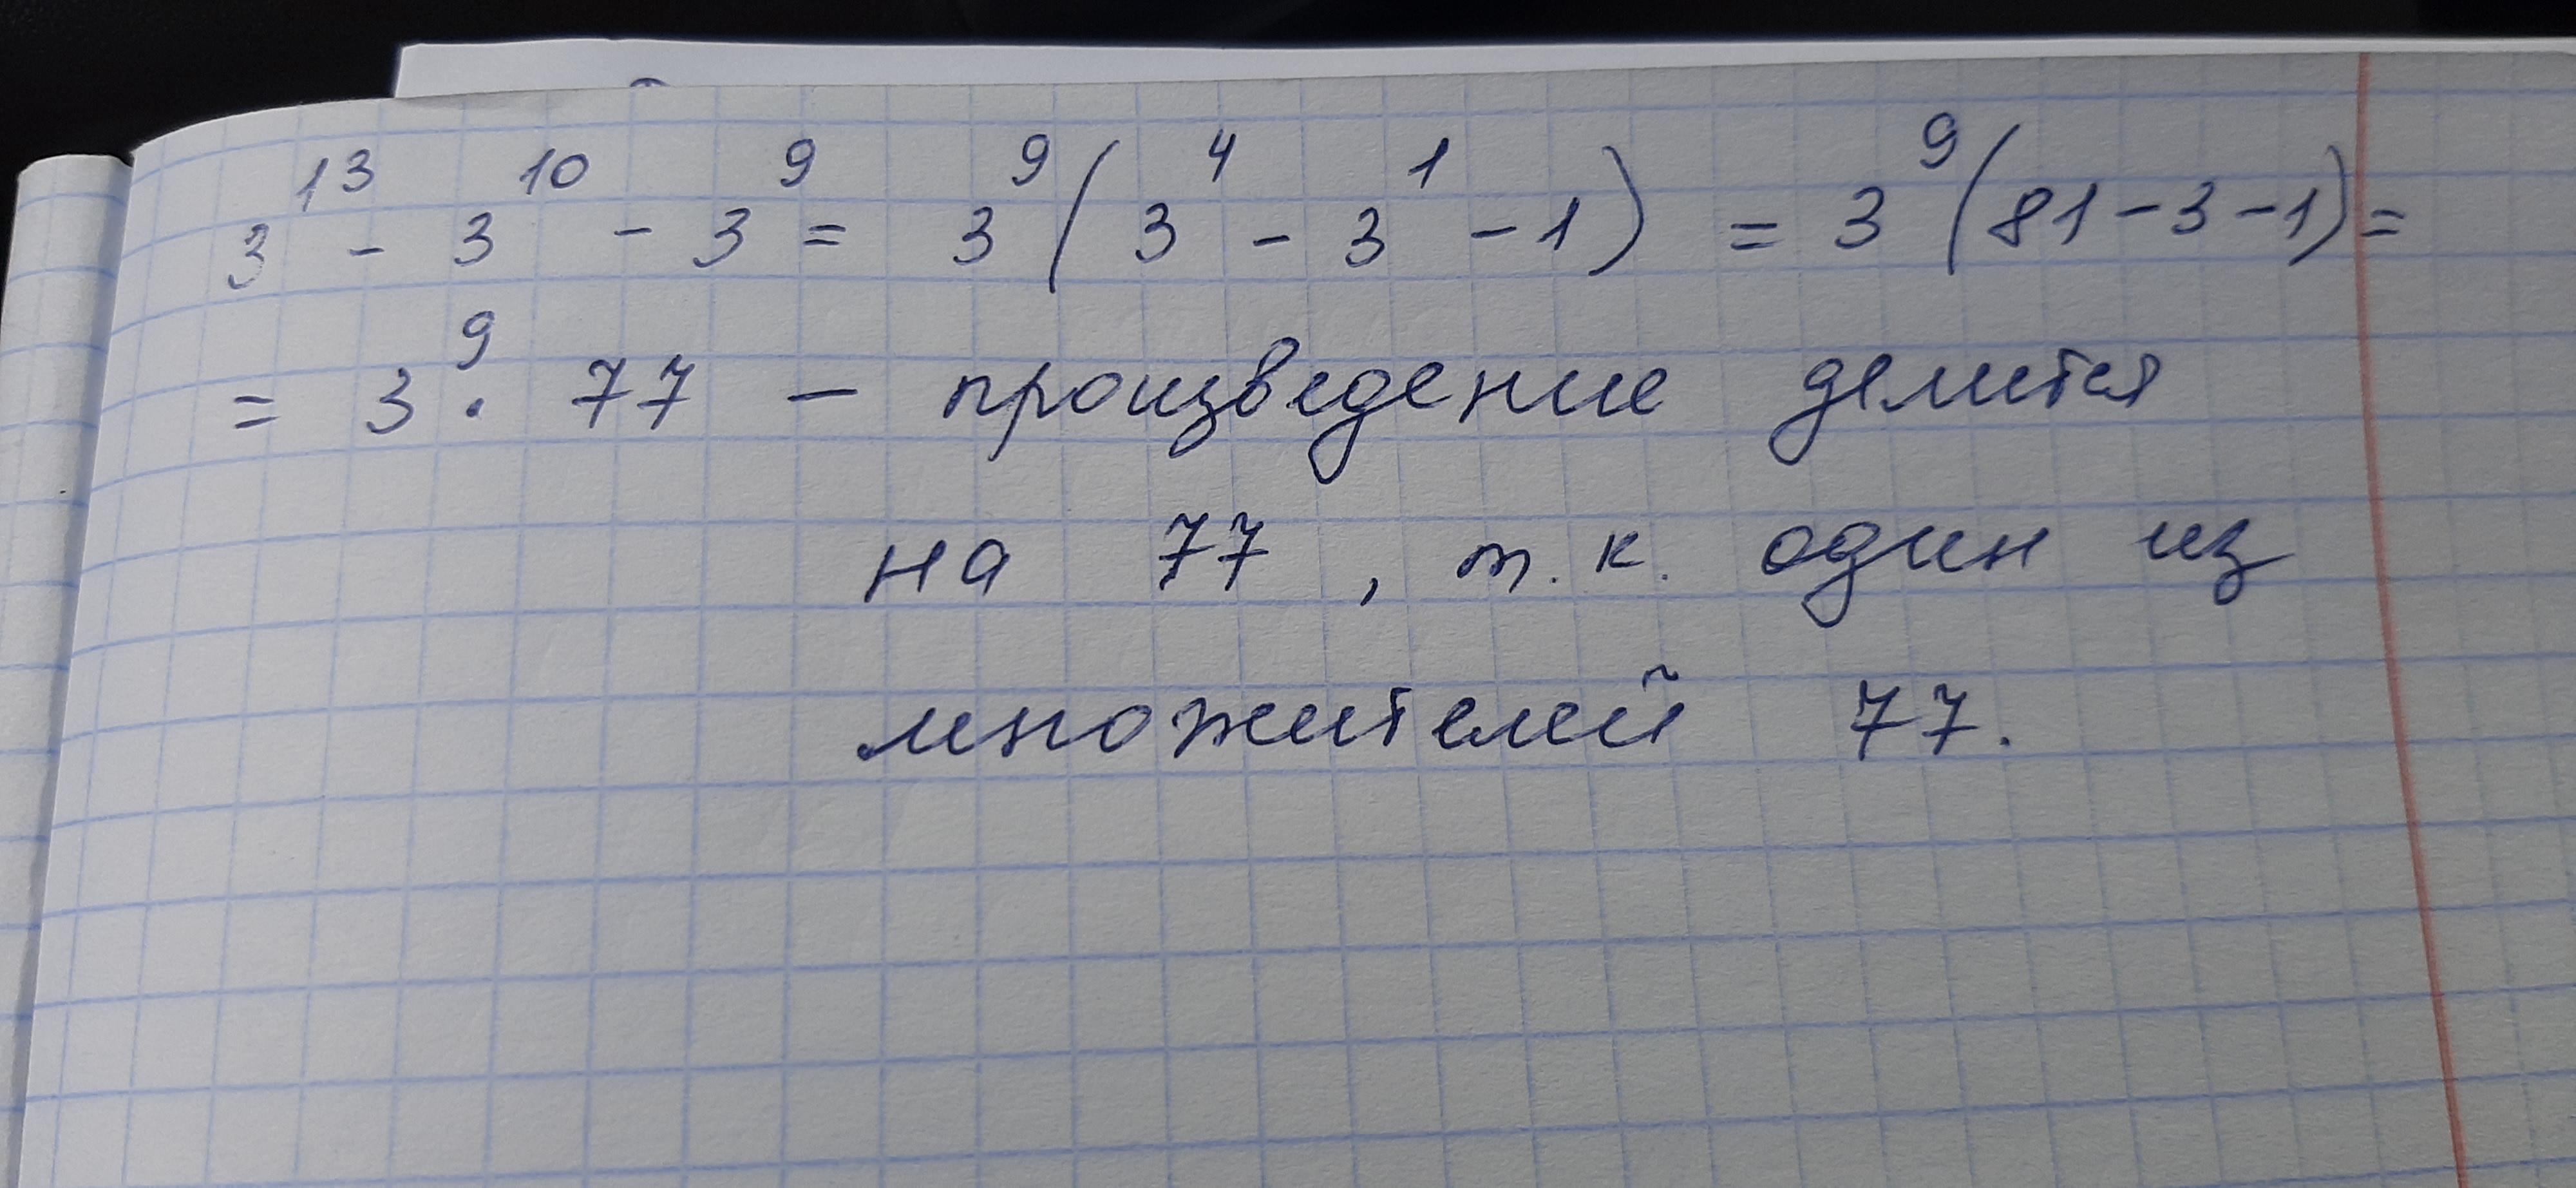 3¹³ - 3¹⁰ - 3⁹ = 3⁹(3⁴ - 3¹ - 1) = 3⁹(81 - 3 - 1) =
= 3⁹ · 77 – произведение делится
на 77, т. к. один из
множителей 77.